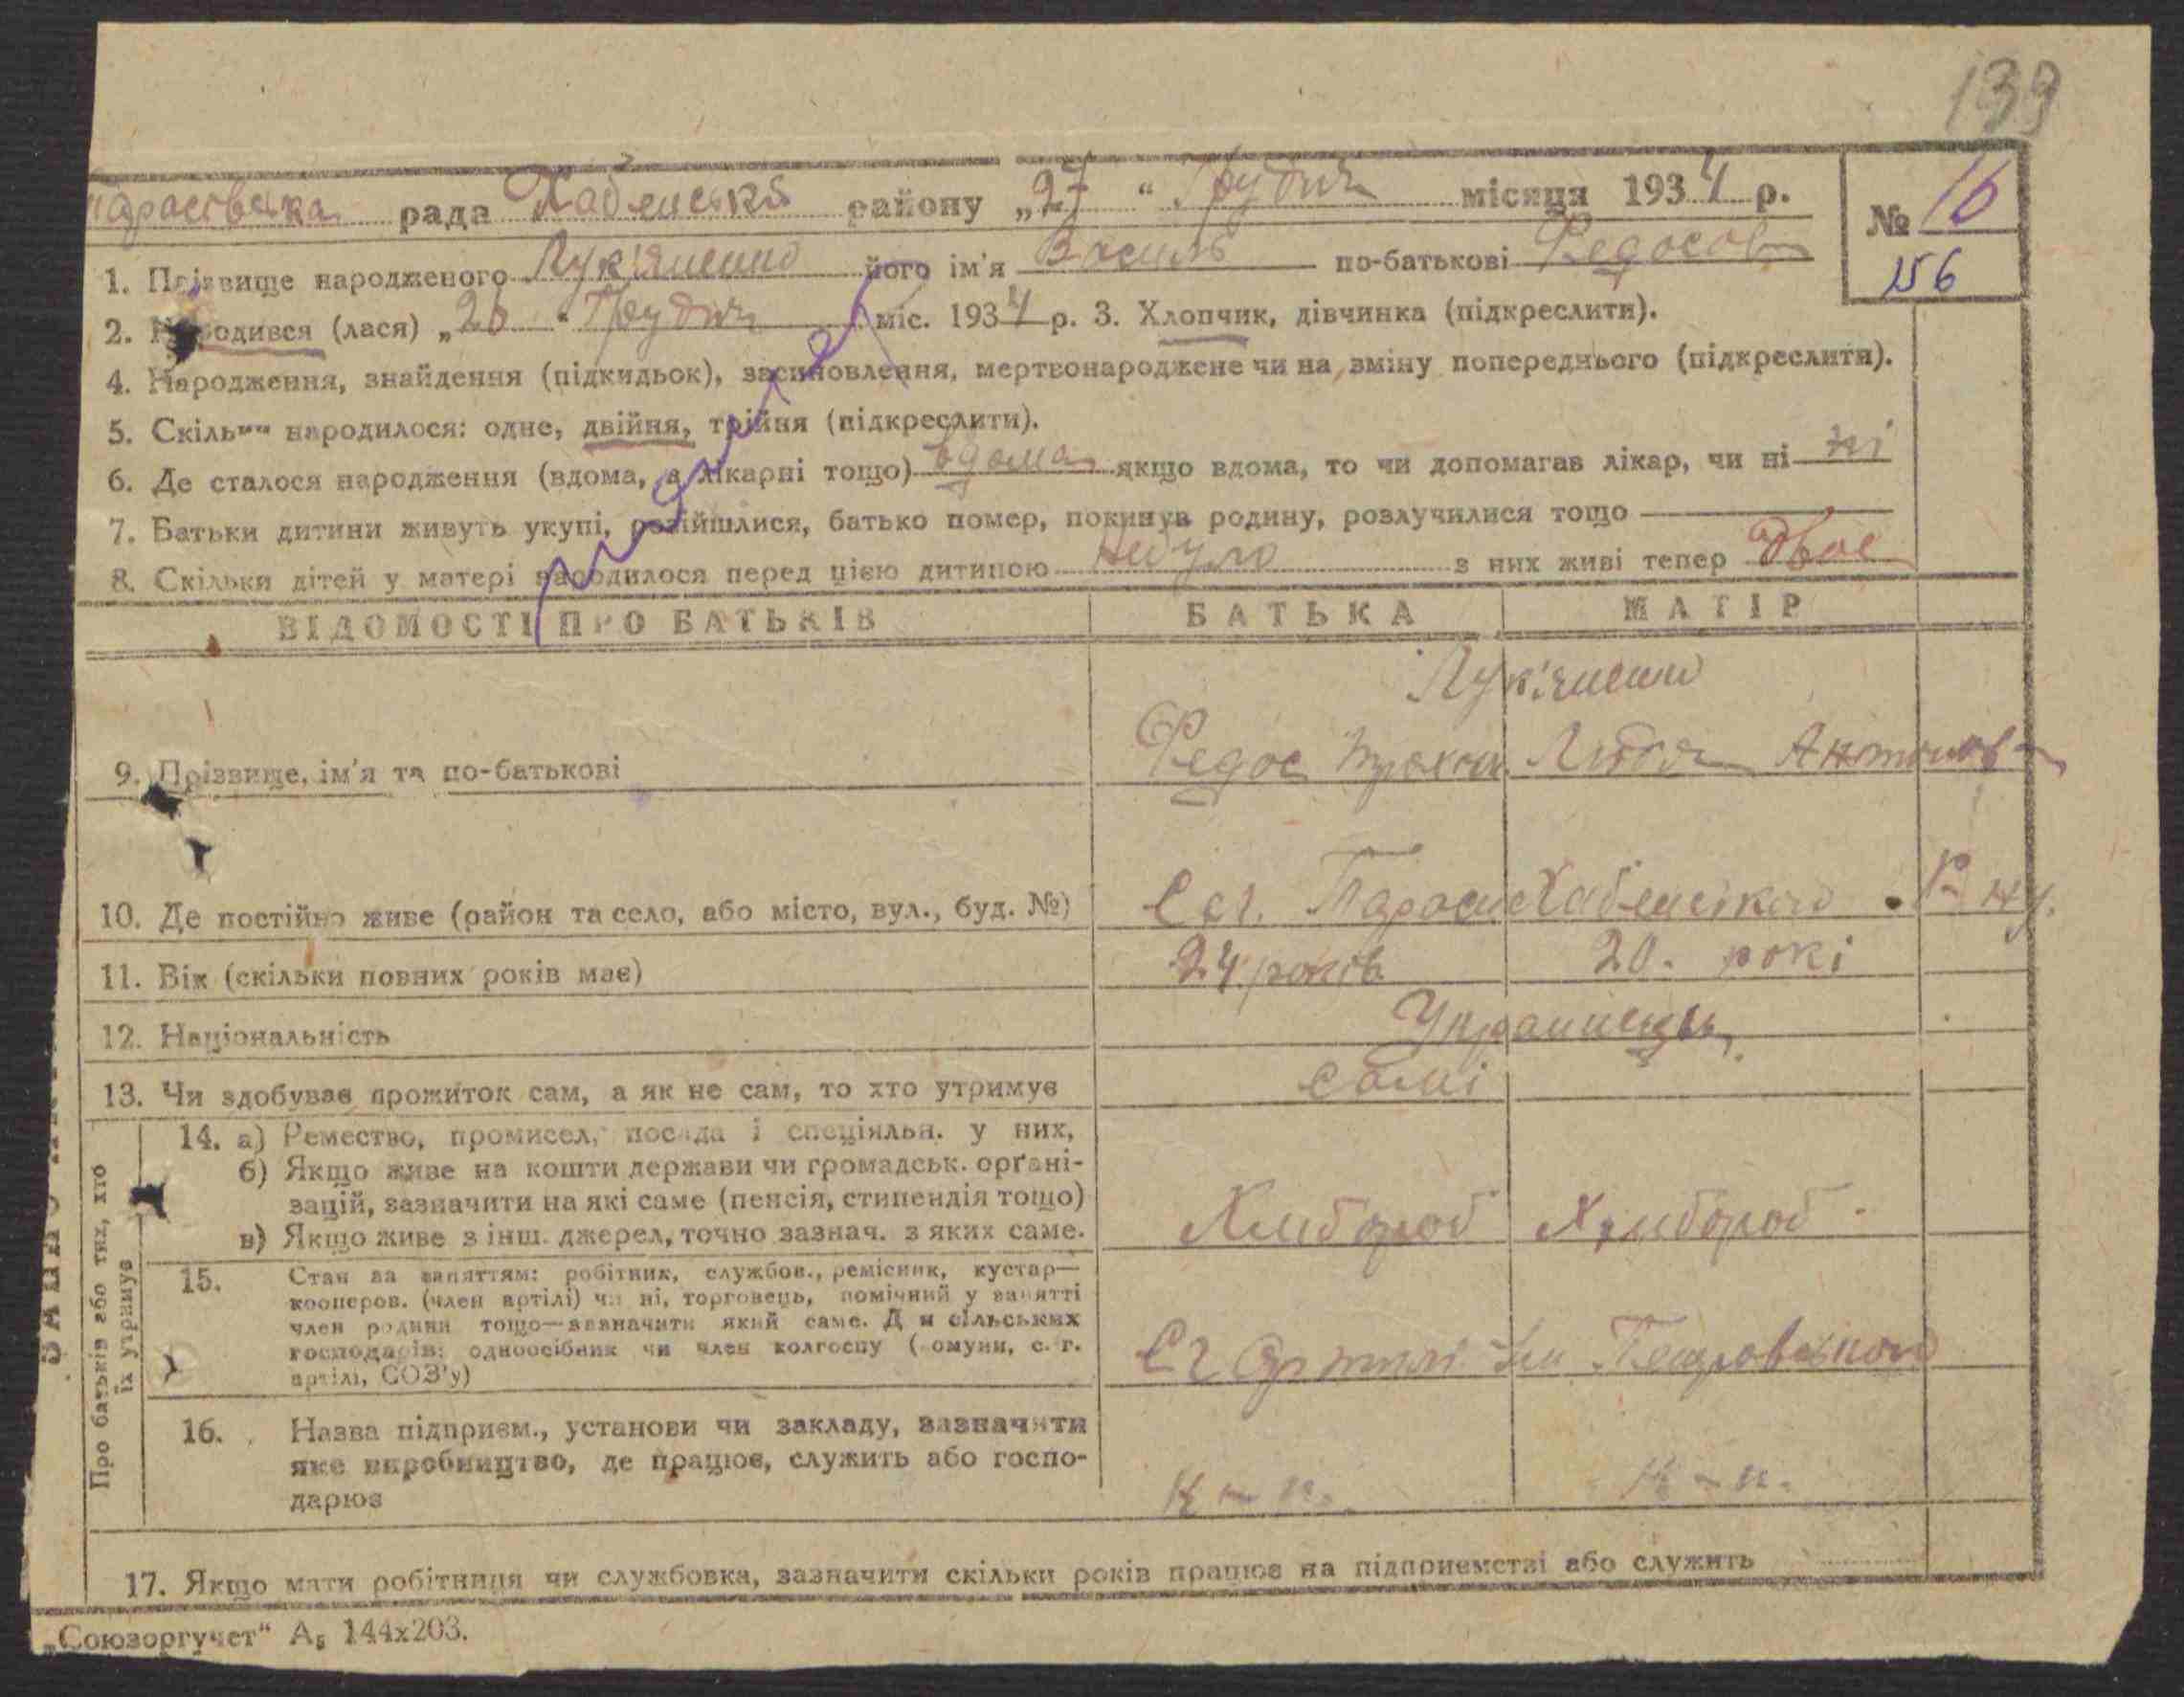 139
рада Хабенська району „27“ Грудня місяця 1934 р. № 16
1. Прізвище народженого Лук'яненко його ім'я Василь по-батькові Федосов
156
2. Народився (лася) „26“ Грудня міс. 1934 р. 3. Хлопчик, дівчинка (підкреслити).
4. Народження, знайдення (підкидьок), засиновлення, мертвонароджене чи на зміну попереднього (підкреслити).
5. Скільки народилося: одне, двійня, трійня (підкреслити).
6. Де сталося народження (вдома, в лікарні тощо) вдома якщо вдома, то чи допомагав лікар, чи ні ні
7. Батьки дитини живуть укупі, розійшлися, батько помер, покинув родину, розлучилися тощо
8. Скільки дітей у матері народилося перед цією дитиною небуло з них живі тепер двоє
ВІДОМОСТІ ПРО БАТЬКІВ БАТЬКА МАТІР
Лук'яненко
9. Прізвище, ім'я та по-батькові Федос Любов Антонов
10. Де постійно живе (район та село, або місто, вул., буд. №) Сел. Тараси Хабенського Р-ну.
11. Вік (скільки повних років має) 24 років 20. рокі
12. Національність Українець
13. Чи здобуває прожиток сам, а як не сам, то хто утримує самі
Про батьків або тих, хто їх утримує
14. а) Ремество, промисел, посада і спеціяльн. у них,
б) Якщо живе на кошти держави чи громадськ. орґані-
зацій, зазначити на які саме (пенсія, стипендія тощо)
в) Якщо живе з інш. джерел, точно зазнач. з яких саме. Хлібороб Хлібороб
15. Стан за заняттям: робітник, службов., ремісник, кустар—
кооперов. (член артілі) чи ні, торговець, помічний у занятті
член родини тощо—зазначити який саме. Для сільських
господарів: одноосібник чи член колгоспу (комуни, с.-г.
артілі, СОЗ'у) СГ Артілі ім Петровського
16. Назва підприєм., установи чи закладу, зазначити
яке виробництво, де працює, служить або госпо-
дарює
17. Якщо мати робітниця чи службовка, зазначити скільки років працює на підприємстві або служить
„Союзоргучет“ А₅ 144х203.